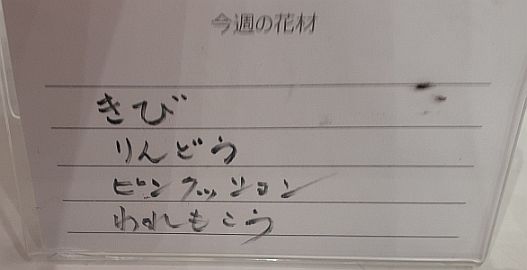 今週の花材
きび
りんどう
ピンクッション
われもこう